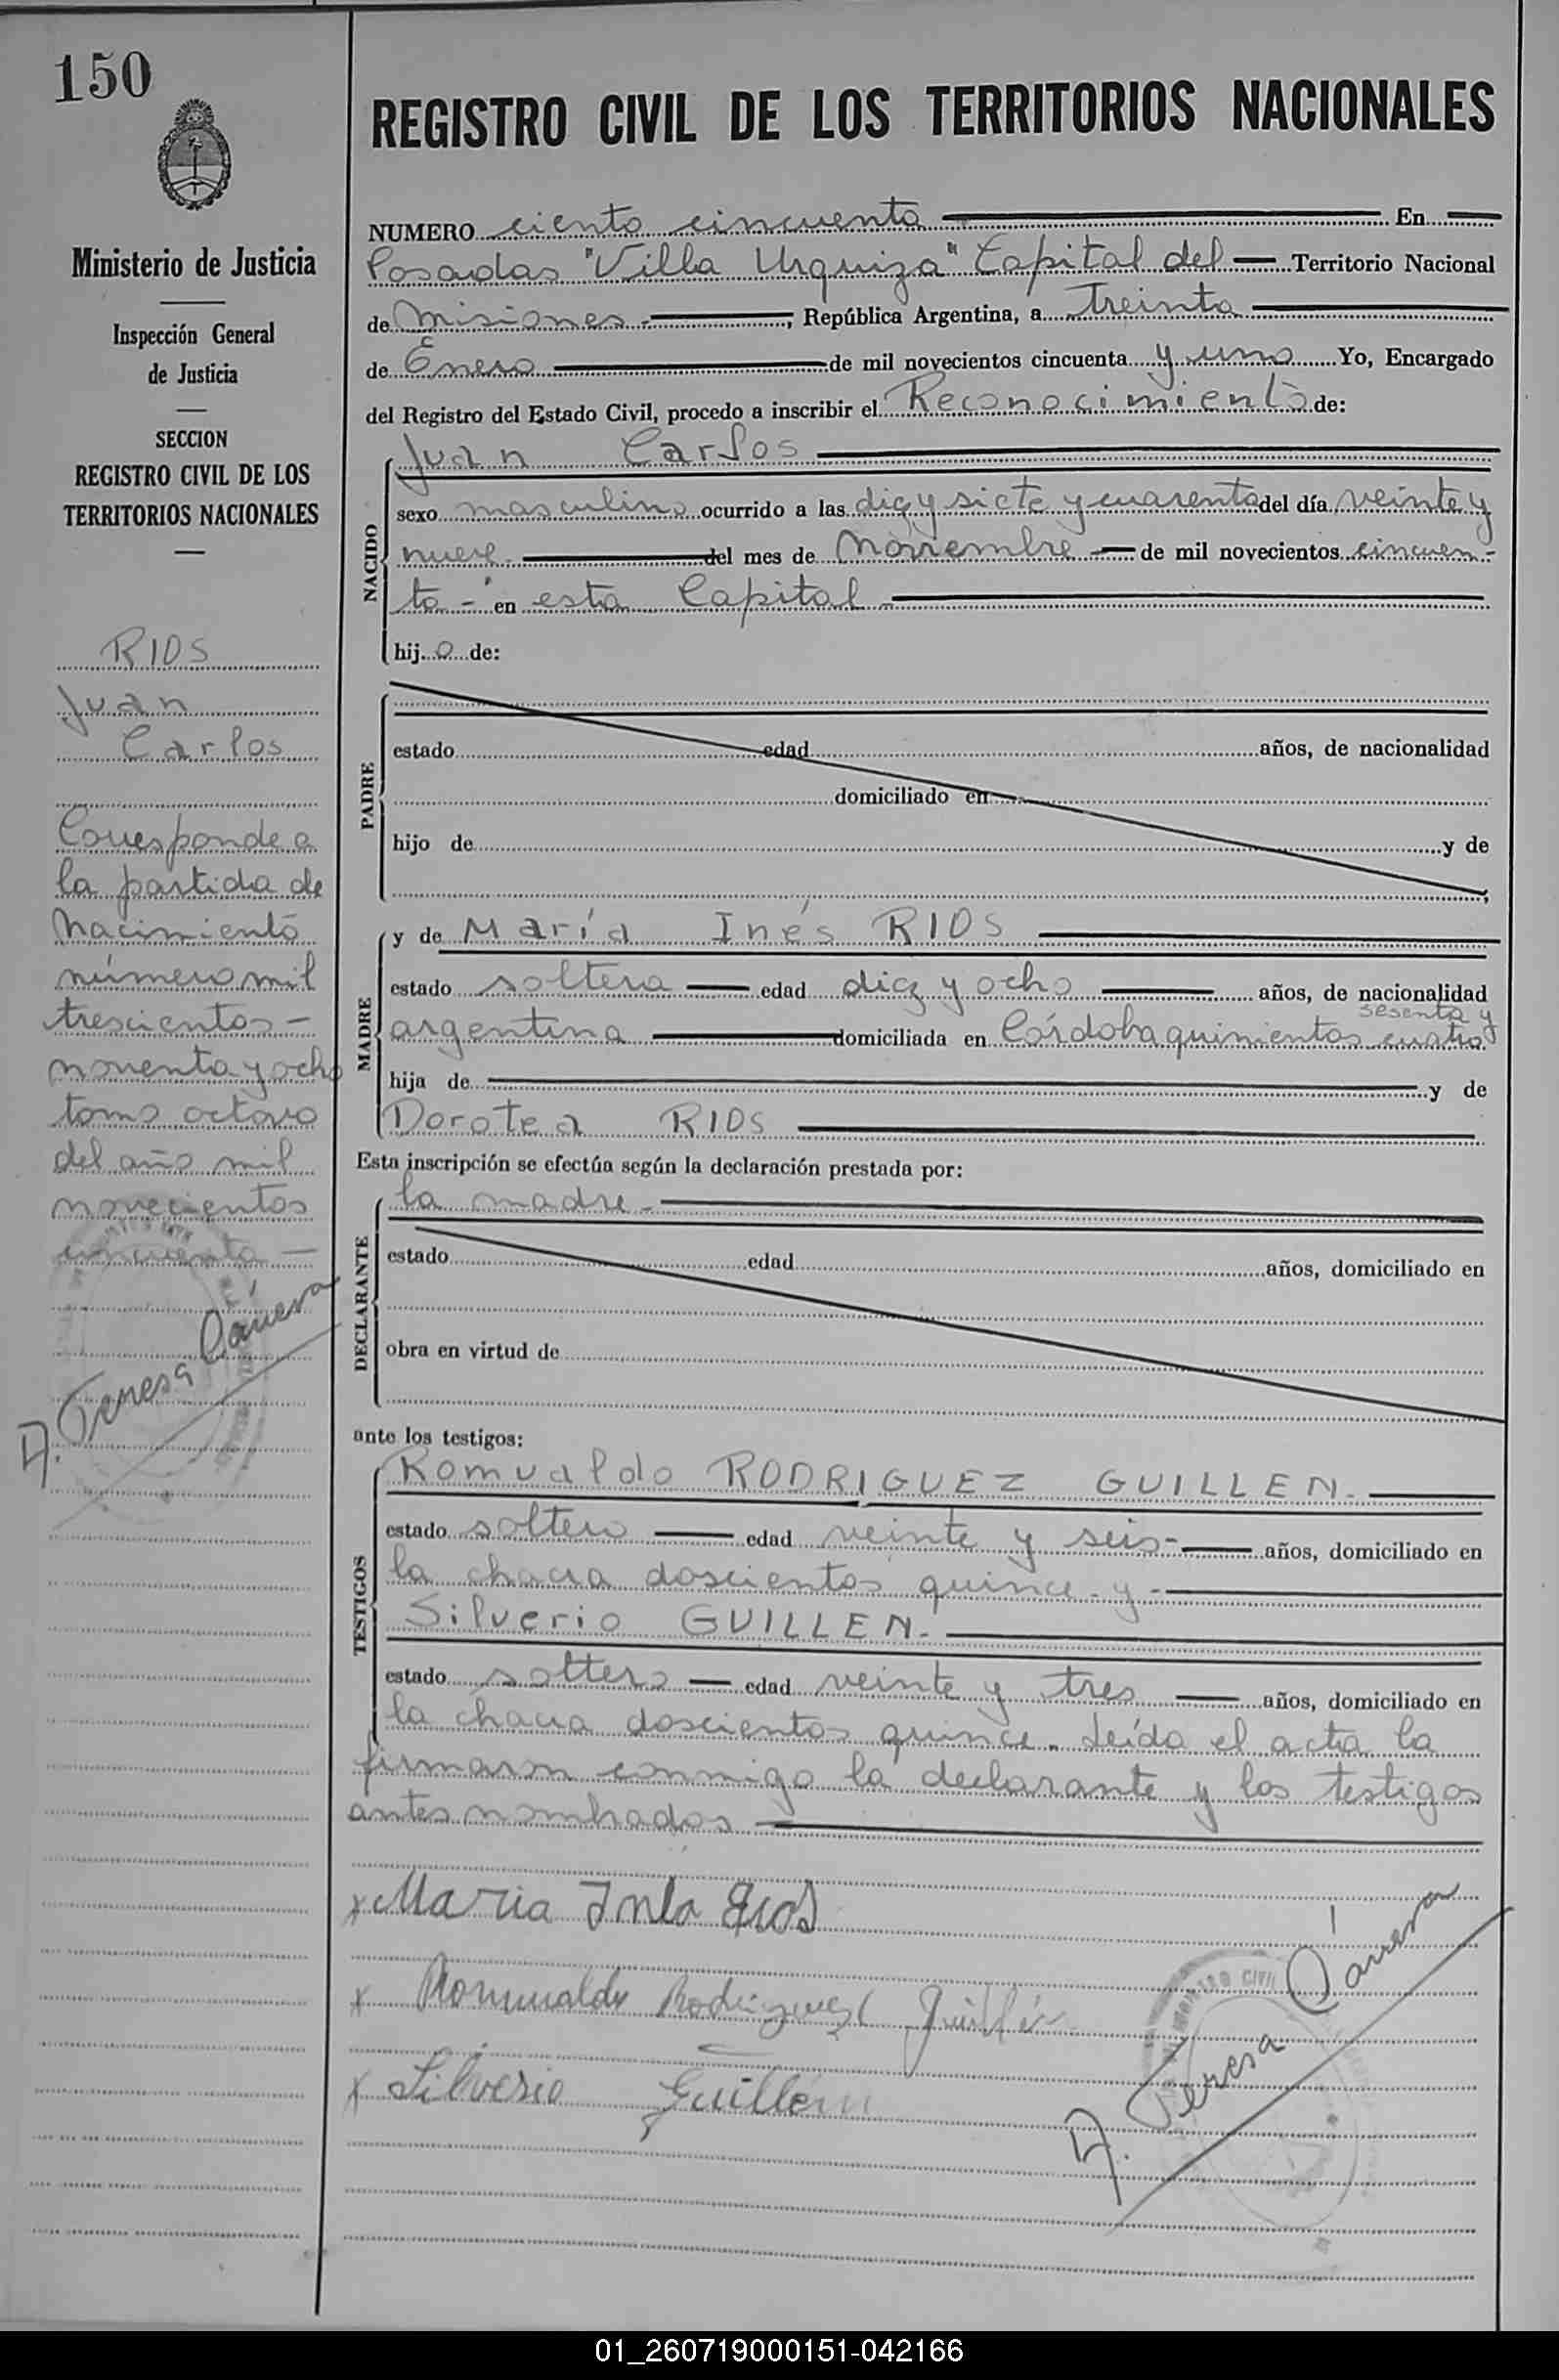 150
Ministerio de Justicia
Inspección General
de Justicia
SECCION
REGISTRO CIVIL DE LOS
TERRITORIOS NACIONALES
RIOS
Juan
Carlos
Corresponde a
la partida de
Nacimiento
número mil
trescientos -
noventa y ocho
tomo octavo
del año mil
novecientos
cincuenta -
A. Teresa
REGISTRO CIVIL DE LOS TERRITORIOS NACIONALES
NUMERO ciento cincuenta En
Posadas "Villa Urquiza" Capital del Territorio Nacional
de Misiones - , República Argentina, a treinta
de Enero de mil novecientos cincuenta y uno Yo, Encargado
del Registro del Estado Civil, procedo a inscribir el Reconocimiento de:
NACIDO
Juan Carlos
sexo masculino ocurrido a las diez y siete y cuarenta del día veinte y
nueve del mes de Noviembre de mil novecientos cincuen-
ta - en esta Capital -
hij o de:
PADRE
estado edad años, de nacionalidad
domiciliado en
hijo de y de
;
MADRE
y de María Inés RIOS
estado soltera edad diez y ocho años, de nacionalidad
sesenta y
argentina domiciliada en Córdoba quinientos cuatro
hija de y de
Dorotea RIOS
Esta inscripción se efectúa según la declaración prestada por:
DECLARANTE
la madre -
estado edad años, domiciliado en
obra en virtud de
ante los testigos:
TESTIGOS
Romualdo RODRIGUEZ GUILLEN.
estado soltero edad veinte y seis - años, domiciliado en
la chacra doscientos quince y -
Silverio GUILLEN.
estado soltero edad veinte y tres años, domiciliado en
la chacra doscientos quince. Leída el acta la
firmaron conmigo la declarante y los testigos
antes nombrados
x Maria Rios
x Romualdo Rodriguez Guillén
x Silverio Guillén
A. Teresa
REGISTRO CIVIL
01_260719000151-042166